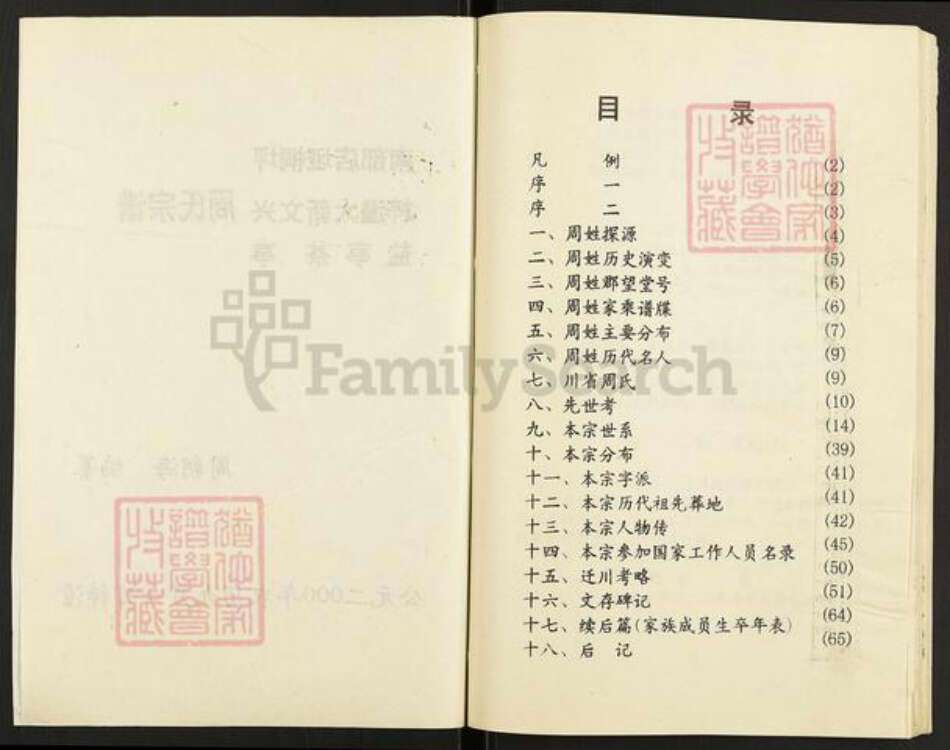 目 录
凡 例 (2)
序 一 (2)
序 二 (3)
一、周姓探源 (4)
二、周姓历史演变 (5)
三、周姓郡望堂号 (6)
四、周姓家乘谱牒 (6)
五、周姓主要分布 (7)
六、周姓历代名人 (9)
七、川省周氏 (9)
八、先世考 (10)
九、本宗世系 (14)
十、本宗分布 (39)
十一、本宗字派 (41)
十二、本宗历代祖先葬地 (41)
十三、本宗人物传 (42)
十四、本宗参加国家工作人员名录 (45)
十五、迁川考略 (50)
十六、文存碑记 (51)
十七、续后篇(家族成员生卒年表) (64)
十八、后 记 (65)
猶他家
譜學會
收藏
猶他家
譜學會
收藏
FamilySearch